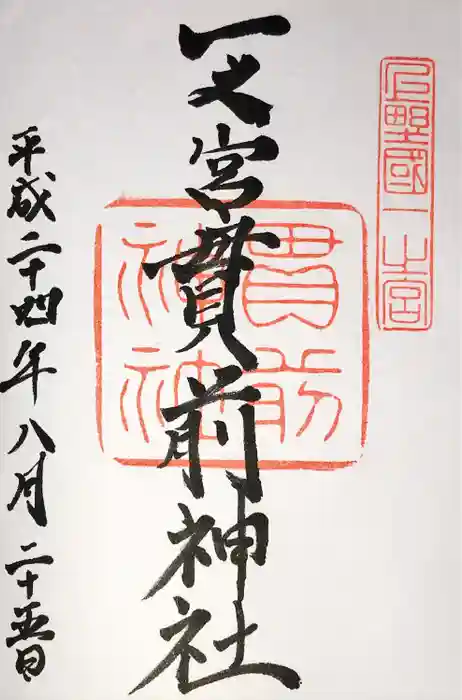 上野國一之宮
一之宮貫前神社
平成二十四年八月二十五日